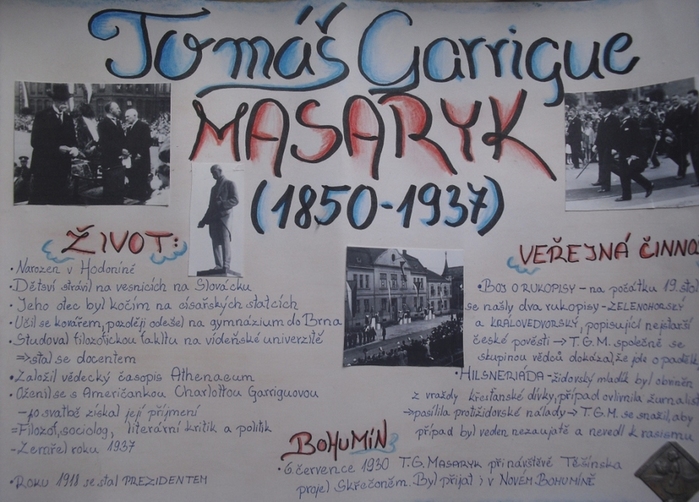 Tomáš Garrigue
MASARYK
(1850-1937)
ŽIVOT:
• Narozen v Hodoníně
• Dětsví strávil na vesnicích na Slovácku
• Jeho otec byl kočím na císařských statcích
• Učil se kovářem, později odešel na gymnázium do Brna
• Studoval filozofickou fakltu na vídeňské univerzitě
⇒ stal se docentem
• Založil vědecký časopis Athenaeum
• Oženil se s Američankou Charlottou Garriguovou
- po svatbě získal její příjmení
= Filozof, sociolog, literární kritik a politik
- Zemřel roku 1937
• ROKU 1918 se stal PREZIDENTEM
VEŘEJNÁ ČINNO
• BOJ O RUKOPISY - na počátku 19. stol
se našly dva rukopisy - ZELENOHORSKÝ
a KRÁLOVEDVORSKÝ, popisující nejstarší
české pověsti → T.G.M. společně se
skupinou vědců dokázal, že jde o padělk
• HILSNERIÁDA - židovský mladík byl obviněn
z vraždy křesťanské dívky, případ ovlivnila žurnalist
⇒ posílila protižidovské nálady → T.G.M. se snažil, aby
případ byl veden nezaujatě a nevedl k rasismu
BOHUMÍN
• 6. července 1930 T.G. MASARYK při návštěvě Těšínska
projel Skřečoněm. Byl přijat i v NOVÉM BOHUMÍNĚ